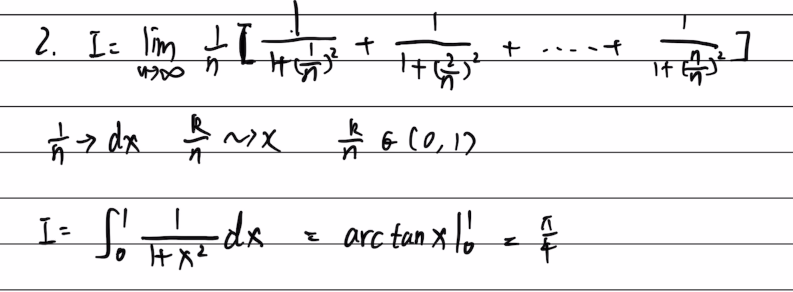 2. I = lim_{n→∞} 1/n [ 1/(1+(1/n)²) + 1/(1+(2/n)²) + ..... + 1/(1+(n/n)²) ]
1/n → dx k/n ⇝ x k/n ∈ (0, 1)
I = ∫₀¹ 1/(1+x²) dx = arctan x |₀¹ = π/4